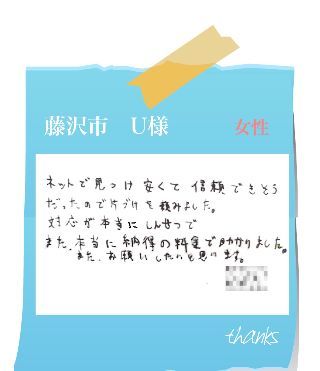 藤沢市　U様　女性
ネットで見つけ 安くて 信頼できそう
だったので片づけを頼みました。
対応が本当にしんせつで
また、本当に納得の料金で助かりました。
また、お願いしたいと思います。
thanks